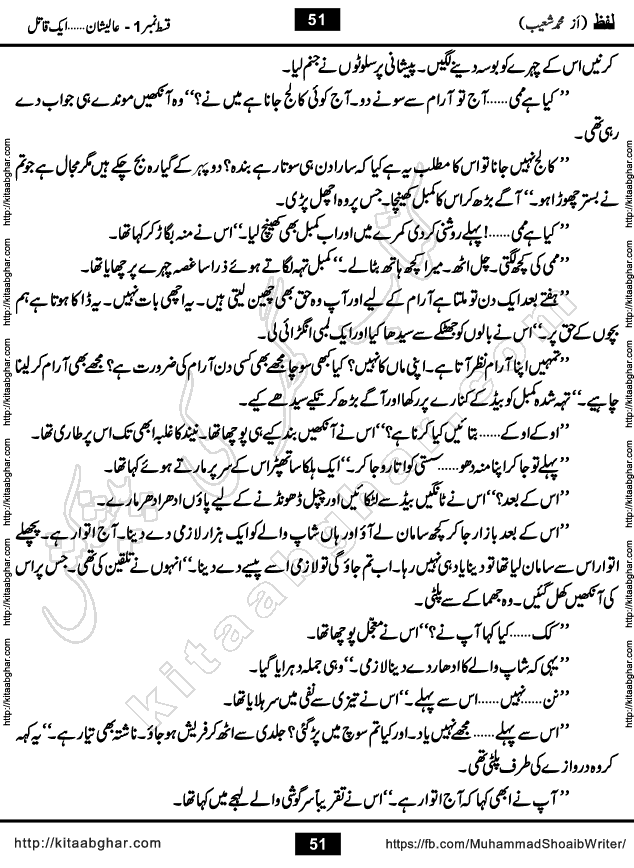 لفظ (از محمد شعیب)
51
قسط نمبر 1 - عالیشان......ایک قاتل
کرنیں اس کے چہرے کو بوسہ دینے لگیں۔ پیشانی پر سلوٹوں نے جنم لیا۔
’’کیا ہے ممی......آج تو آرام سے سونے دو۔ آج کوئی کالج جانا ہے میں نے؟‘‘ وہ آنکھیں موندے ہی جواب دے
رہی تھی۔
’’کالج نہیں جانا تو اس کا مطلب یہ ہے کیا کہ سارا دن ہی سوتا رہے بندہ؟ دوپہر کے گیارہ بج چکے ہیں مگر مجال ہے جو تم
نے بستر چھوڑا ہو۔‘‘ آگے بڑھ کر اس کا کمبل کھینچا۔ جس پر وہ اچھل پڑی۔
’’کیا ہے ممی......! پہلے روشنی کر دی کمرے میں اور اب کمبل بھی کھینچ لیا۔‘‘ اس نے منہ بگاڑ کر کہا تھا۔
’’ممی کی کچھ لگتی۔ چل اٹھ۔ میرا کچھ ہاتھ بٹا لے۔‘‘ کمبل تہہ لگاتے ہوئے ذرا سا غصہ چہرے پر چھایا تھا۔
’’ہفتے بعد ایک دن تو ملتا ہے آرام کے لیے اور آپ وہ حق بھی چھین لیتی ہیں۔ یہ اچھی بات نہیں۔ یہ ڈاکا ہوتا ہے ہم
بچوں کے حق پر۔‘‘ اس نے بالوں کو جھٹکے سے سیدھا کیا اور ایک لمبی انگڑائی لی۔
’’تمہیں اپنا آرام نظر آتا ہے۔ اپنی ماں کا نہیں؟ کیا کبھی سوچا مجھے بھی کسی دن آرام کی ضرورت ہے؟ مجھے بھی آرام کر لینا
چاہیے۔‘‘ تہہ شدہ کمبل کو بیڈ کے کنارے پر رکھا اور آگے بڑھ کر تکیے سیدھے کیے۔
’’اوکے اوکے...... بتائیں کیا کرنا ہے؟‘‘ اس نے آنکھیں بند کیے ہی پوچھا تھا۔ نیند کا غلبہ ابھی تک اس پر طاری تھا۔
’’پہلے تو جا کر اپنا منہ دھو......سستی کو اتارو جا کر۔‘‘ ایک ہلکا سا تھپڑ اس کے سر پر مارتے ہوئے کہا تھا۔
’’اس کے بعد؟‘‘ اس نے ٹانگیں بیڈ سے لٹکائیں اور چپل ڈھونڈنے کے لیے پاؤں ادھر ادھر مارے۔
’’اس کے بعد بازار جا کر کچھ سامان لے آؤ اور ہاں شاپ والے کو ایک ہزار لازمی دے دینا۔ آج اتوار ہے۔ پچھلے
اتوار اس سے سامان لیا تھا تو دینا یاد ہی نہیں رہا۔ اب تم جاؤ گی تو لازمی اسے پیسے دے دینا۔‘‘ انہوں نے تلقین کی تھی۔ جس پر اس
کی آنکھیں کھل گئیں۔ وہ جھماکے سے پلٹی۔
’’کک......کیا کہا آپ نے؟‘‘ اس نے معجل پوچھا تھا۔
’’یہی کہ شاپ والے کا ادھار دے دینا لازمی۔‘‘ وہی جملہ دہرایا گیا۔
’’نن......نہیں......اس سے پہلے۔‘‘ اس نے تیزی سے نفی میں سر ہلایا تھا۔
’’اس سے پہلے...... مجھے نہیں یاد۔ اور کیا تم سوچ میں پڑ گئی؟ جلدی سے اٹھ کر فریش ہو جاؤ۔ ناشتہ بھی تیار ہے۔‘‘ یہ کہہ
کر وہ دروازے کی طرف پلٹی تھی۔
’’آپ نے ابھی کہا کہ آج اتوار ہے۔‘‘ اس نے تقریباً سرگوشی والے لہجے میں کہا تھا۔
http://kitaabghar.com
http://kitaabghar.com
http://kitaabghar.com
http://kitaabghar.com
http://kitaabghar.com
http://kitaabghar.com
http://kitaabghar.com
http://kitaabghar.com
http://kitaabghar.com
http://kitaabghar.com
http://kitaabghar.com
http://kitaabghar.com
کتاب گھر کی پیشکش
kitaabghar.com
http://kitaabghar.com
51
https://fb.com/MuhammadShoaibWriter/